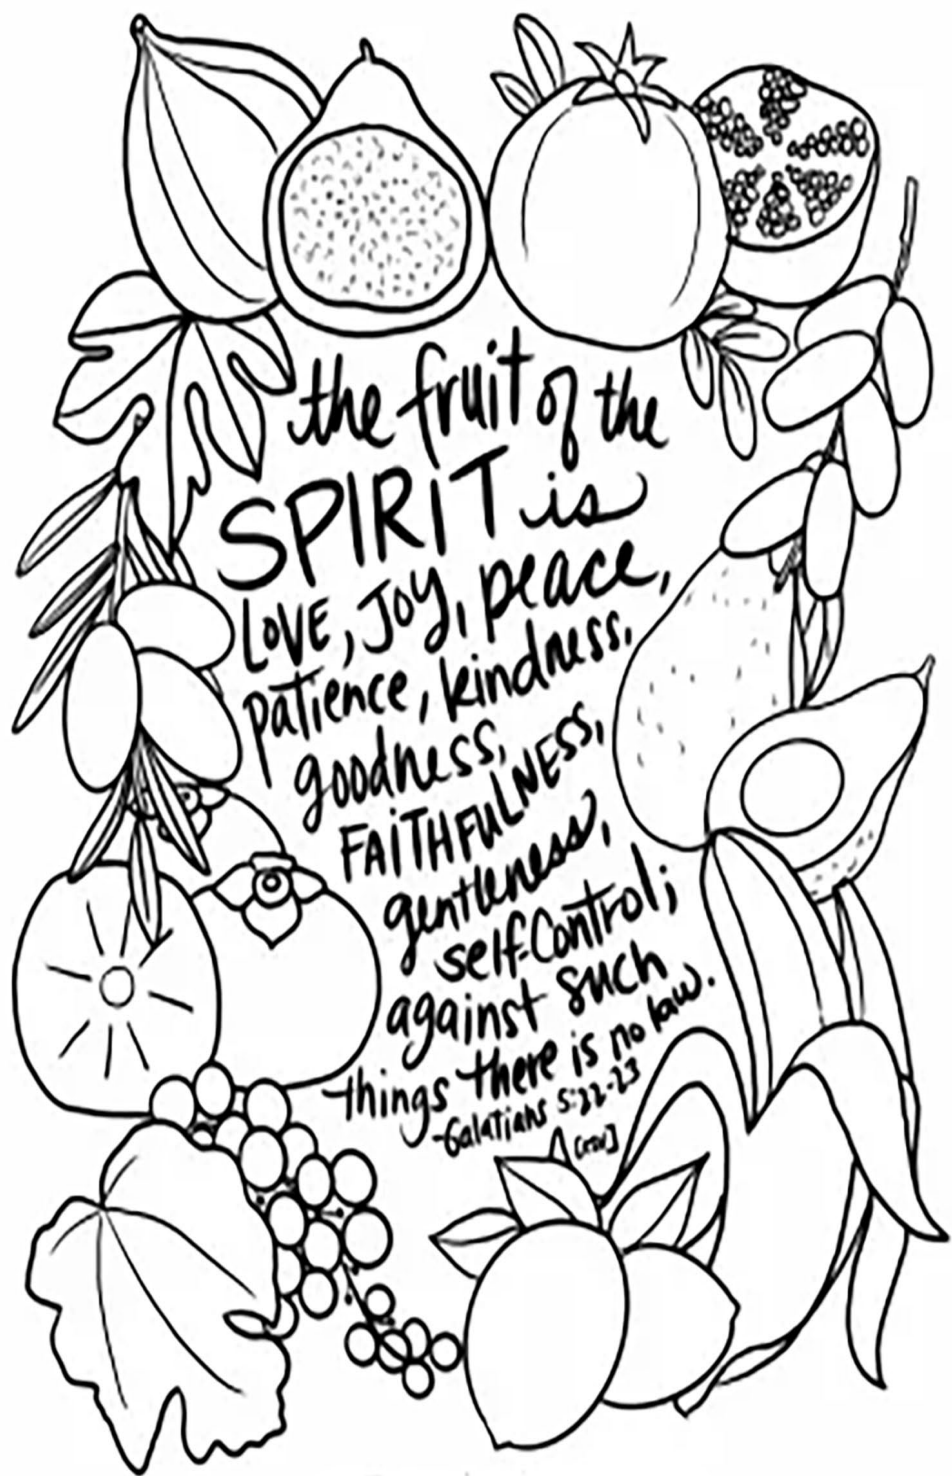 the fruit of the
SPIRIT is
LOVE, JOY, peace,
patience, kindness,
goodness,
FAITHFULNESS,
gentleness,
self-control;
against such
things there is no law.
-Galatians 5:22-23